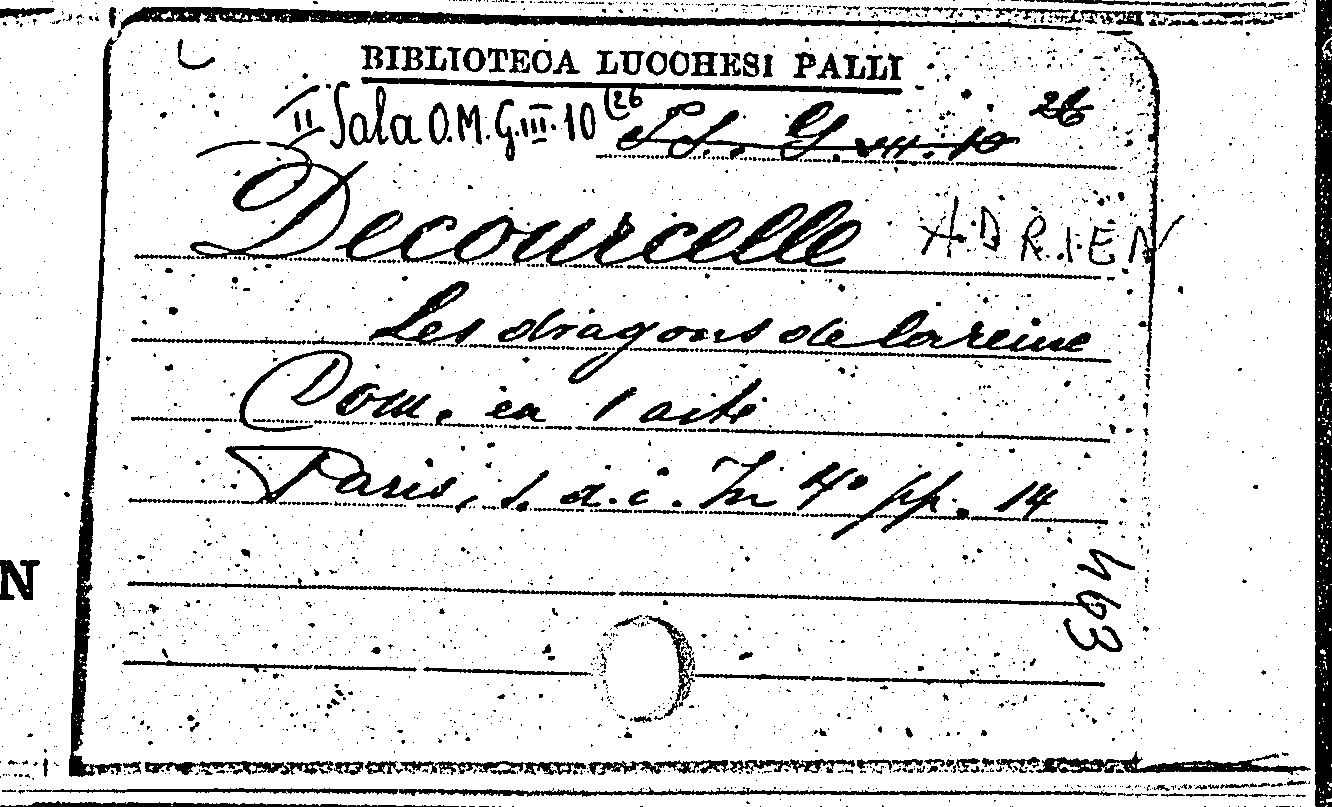 BIBLIOTECA LUCCHESI PALLI
II Sala O.M. G.III.10 (26
S.S. G. VII. 10 26
Decourcelle ADRIEN
Les dragons de la reine
Com. en 1 acte
Paris, s. d. i. In 4° pp. 14
463
N